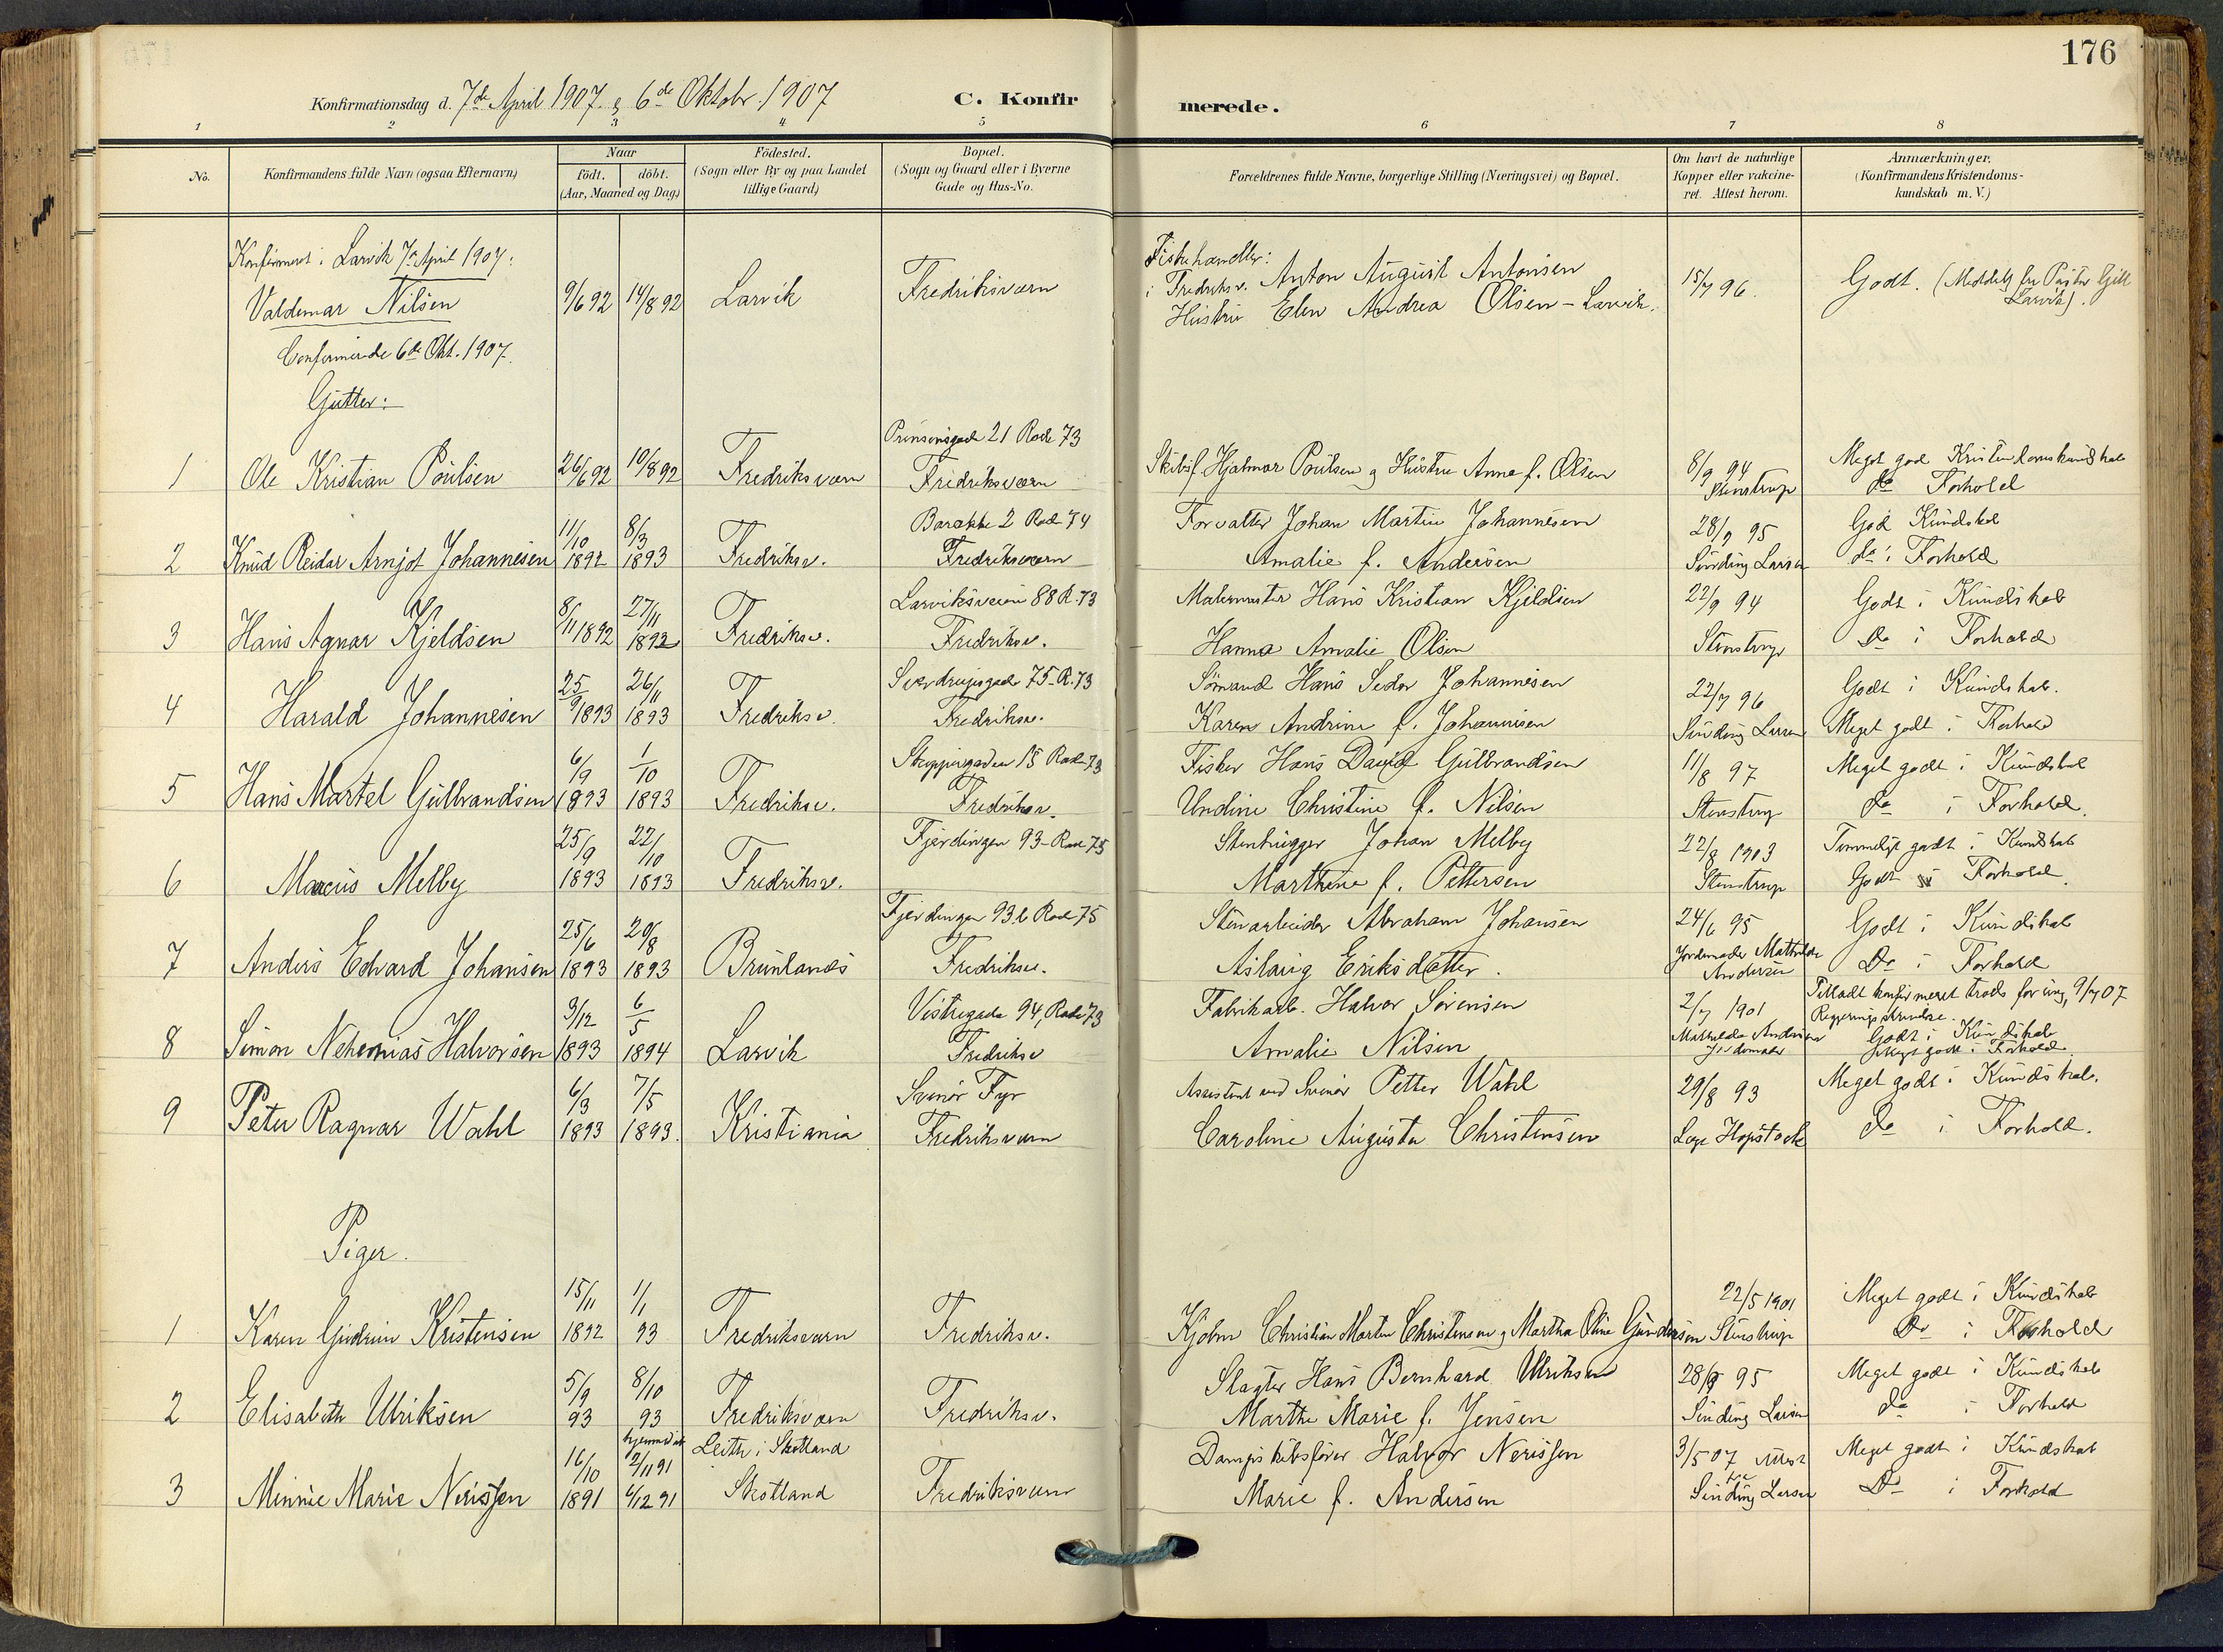 176
Konfirmationsdag d. 7de April 1907 & 6de Oktobr. 1907
C. Konfirmerede.
1 2 3 4 5 6 7 8
No.
Konfirmandens fulde Navn (ogsaa Efternavn)
Naar
Født. døbt.
(Aar, Maaned og Dag)
Födested.
(Sogn eller By og paa Landet
tillige Gaard)
Bopæl.
(Sogn og Gaard eller i Byerne
Gade og Hus-No.
Forældrenes fulde Navne, borgerlige Stilling (Næringsvei) og Bopæl.
Om havt de naturlige
Kopper eller vakcine-
ret. Attest herom.
Anmærkninger.
(Konfirmandens Kristendoms-
kundskab m. V.)
Konfirmeret i Larvik 7de April 1907:
Fiskehandler:
Valdemar Nilsen 9/6 92 14/8 92 Larvik Fredriksværn
i Fredriksv. Anton August Antonsen 15/7 96. Godt. (Meddelt fra Pastor
Hustru Elen Andrea Olsen - Larvik. Larvik).
Confirmerede 6de Okt. 1907.
Gutter:
Prinsensgade 21 Rode 73
1 Ole Kristian Poulsen 26/6 92 10/8 92 Fredriksværn Fredriksværn
Skibsf. Hjalmar Poulsen & Hustru Anna f. Olsen 8/9 94 Meget god Kristendomskundskab
Stenstrup do Forhold
Barakke 2 Rode 74 Forvalter Johan Martin Johannesen 28/9 95 God Kundskab
2 Knud Reidar Arnjot Johannesen 11/10 1892 8/3 1893 Fredriksv. Fredriksværn
Amalie f. Andersen Sinding Larsen do i Forhold
Larviksveien 88 R. 73 Malermester Hans Kristian Kjeldsen 22/9 94 Godt i Kundskab
3 Hans Agnar Kjeldsen 8/11 1892 27/11 1892 Fredriksv. Fredriksv.
Hanna Amalie Olsen Stenstrup do i Forhold
Sverdrupsgade 75 - R. 73 Sömand Hans Sedor Johannesen 22/7 96 Godt i Kundskab.
4 Harald Johannesen 25/9 1893 26/11 1893 Fredriksv. Fredriksv.
Karen Andrine f. Johannesen Sinding Larsen Meget godt i Forhold
Skippergaden 15 Rode 73 Fisker Hans David Gulbrandsen 11/8 97 Meget godt i Kundskab
5 Hans Martel Gulbrandsen 6/9 1893 1/10 1893 Fredriksv. Fredriksv.
Undine Christine f. Nilsen Stenstrup do i Forhold.
Fjerdingen 93 - Rode 75 Stenhugger Johan Melby 22/8 1903 Temmeligt godt i Kundskab
6 Marcus Melby 25/9 1893 22/10 1893 Fredriksv.
Marthine f. Pettersen Stenstrup Godt i Forhold.
Fjerdingen 93 b Rode 75 Stenarbeider Abraham Johansen 24/6 95 Godt i Kundskab
7 Anders Edvard Johansen 25/6 1893 20/8 1893 Brunlanes Fredriksv.
Aslaug Eriksdatter. Jordmoder Mathilde Andersen Do i Forhold
Vestregade 94, Rode 73 Fabrikarb. Halvor Sörensen 2/7 1901 Tilladt konfirmeret trods for ung, 9/7 07
Regjeringsskrivelse.
8 Simon Nehemias Halvorsen 3/12 1893 6/5 1894 Larvik Fredriksv
Amalie Nilsen Mathilde Andersen Jordmoder Godt i Kundskab
Meget godt i Forhold.
Svenör Fyr Assistent ved Svenör Petter Wahl 29/8 93 Meget godt i Kundskab.
9 Peter Ragnar Wahl 6/3 1893 7/5 1893. Kristiania Fredriksværn
Caroline Augusta Christensen Læge Hopstock do i Forhold.
Piger.
22/5 1901 Meget godt i Kundskab
1 Karen Gudrun Kristensen 15/11 1892 1/1 93 Fredriksværn Fredriksv.
Kjøbm Christian Morten Christensen & Martha Oline Gundersen Stenstrup Do i Forhold
Slagter Hans Bernhard Ulriksen 28/9 95 Meget godt i Kundskab
2 Elisabeth Ulriksen 5/9 93 8/10 93 Fredriksværn Fredriksv.
Marthe Marie f. Jensen Sinding Larsen do i Forhold
hjemmedøb 2/11 91 Leith i Skotland Dampskibsfører Halvor Nerissen 3/5 07 Meget godt i Kundskab
3 Minnie Marie Nerissen 16/10 1891 6/12 91 Skotland Fredriksværn
Marie f. Andersen Sinding Larsen Do i Forhold